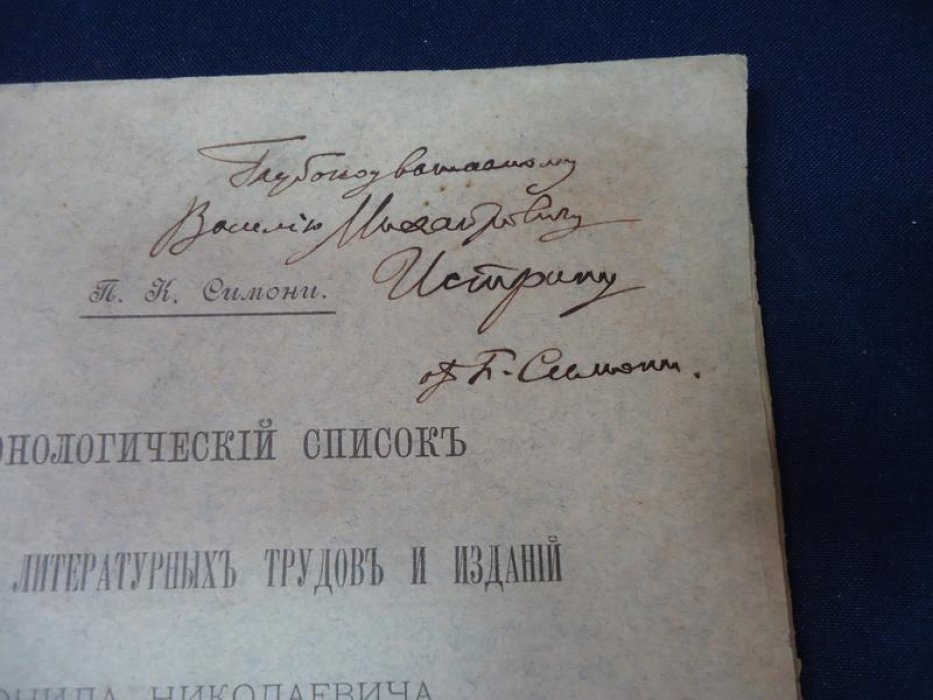 Глубокоуважаемому
Василію Михайловичу
П. К. Симони. Истрину
от П. Симони.
ОНОЛОГИЧЕСКІЙ СПИСОКЪ
ЛИТЕРАТУРНЫХЪ ТРУДОВЪ И ИЗДАНІЙ
ОНИДА НИКОЛАЕВИЧА